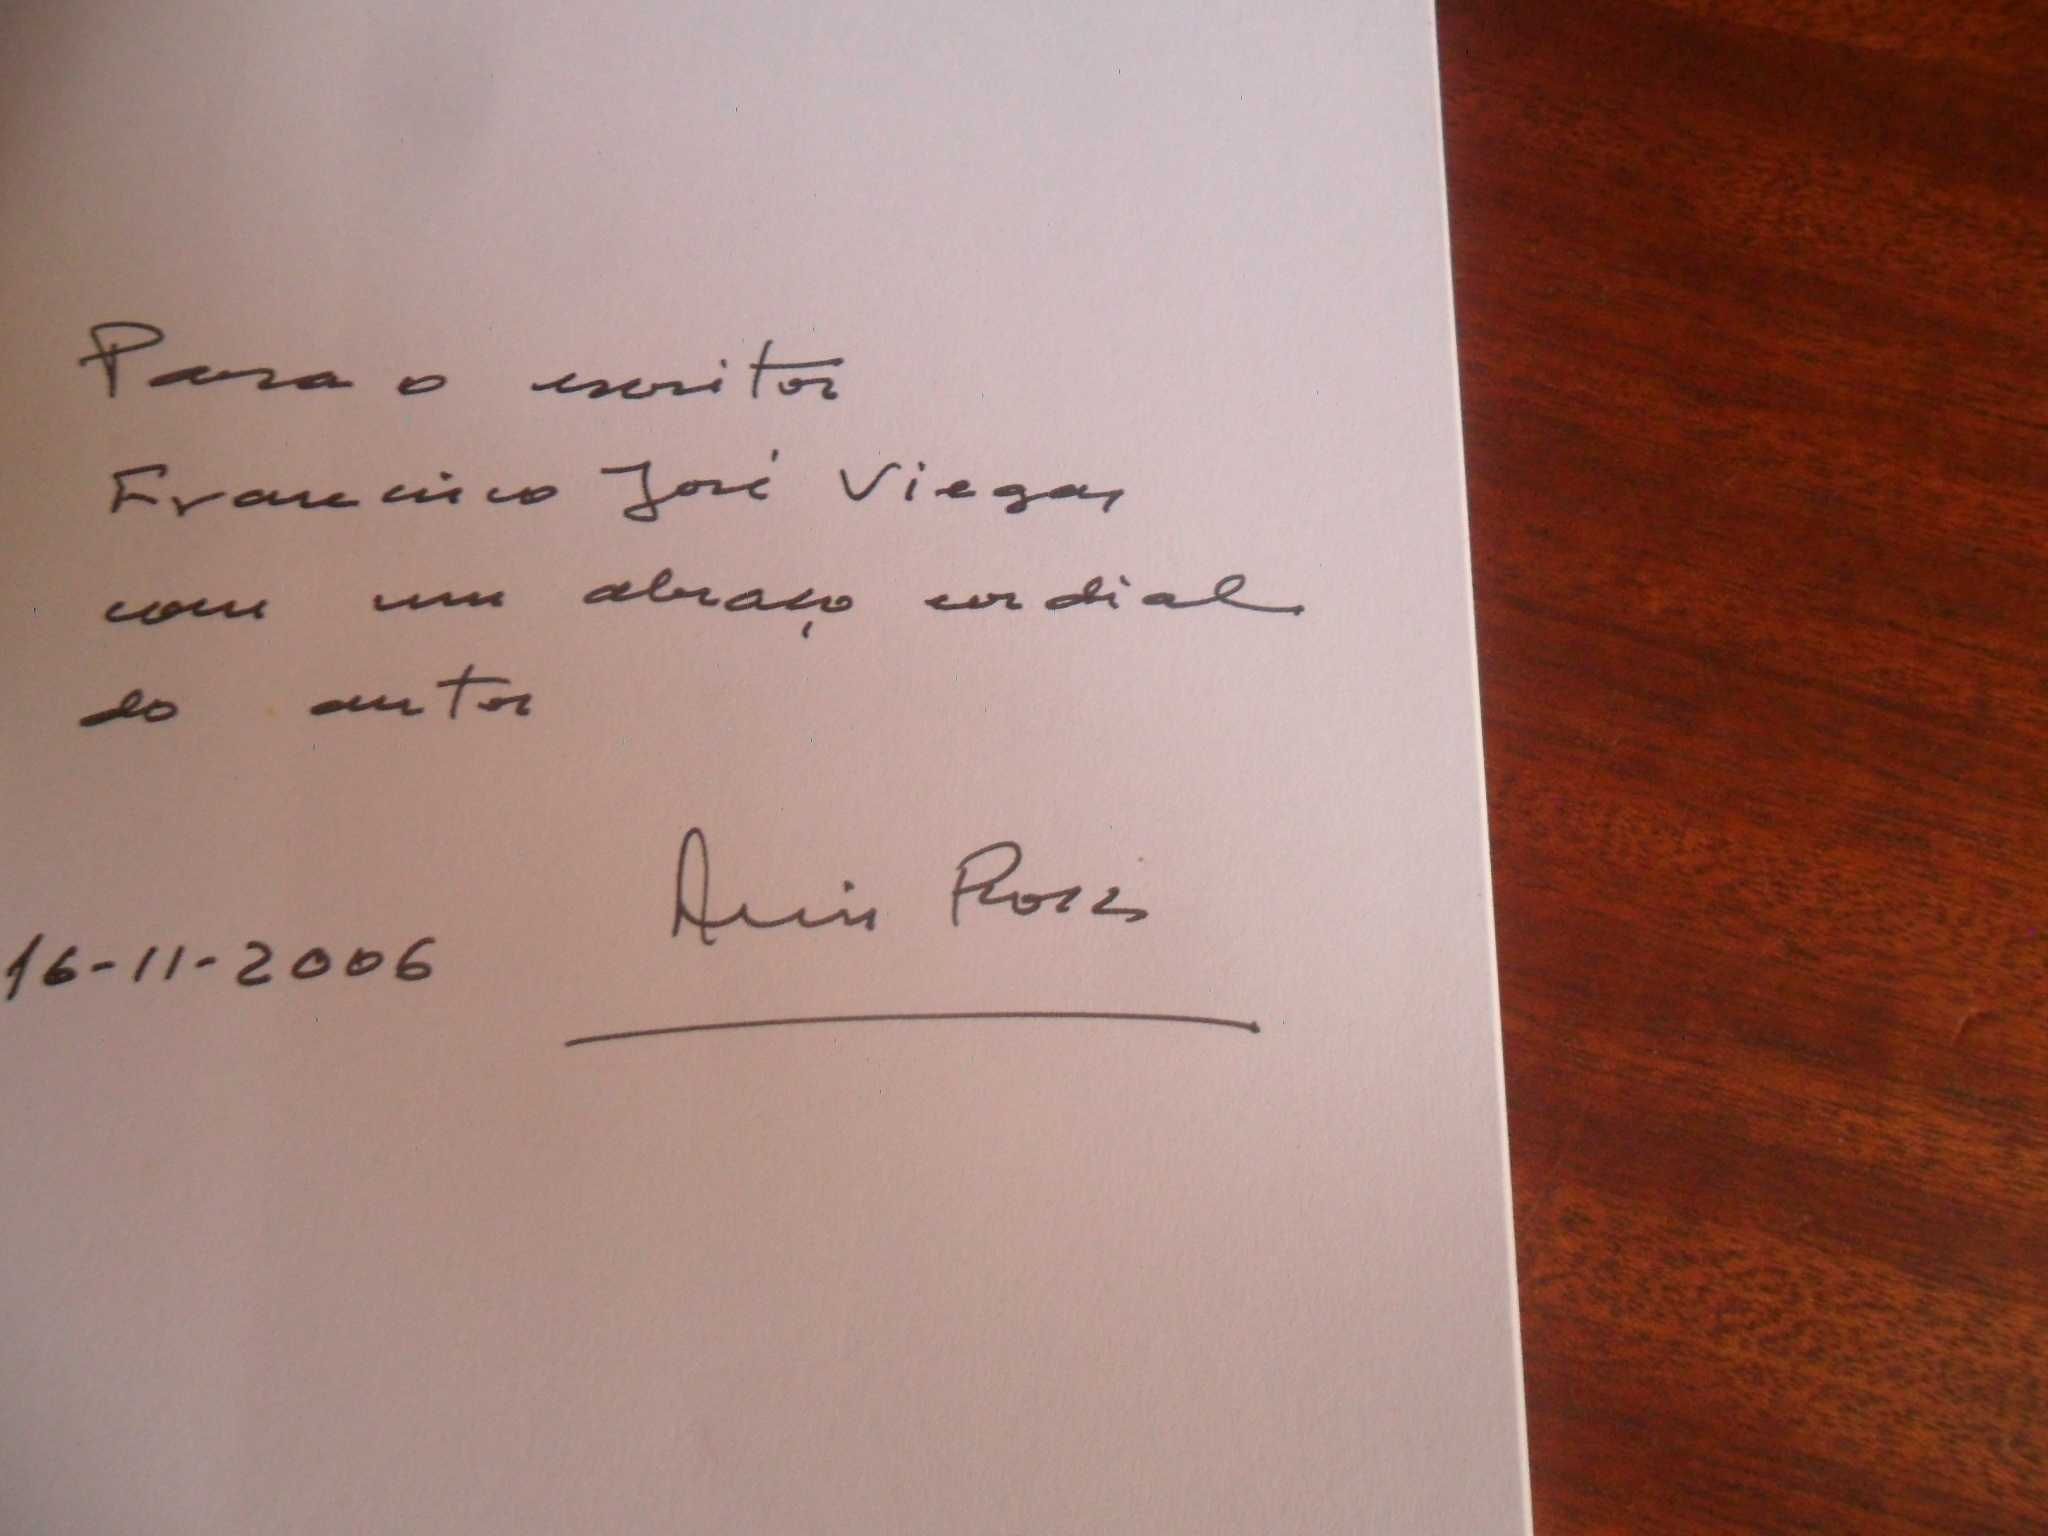 Para o escritor
Francisco José Viegas
com um abraço cordial
do autor
Luis
16-11-2006